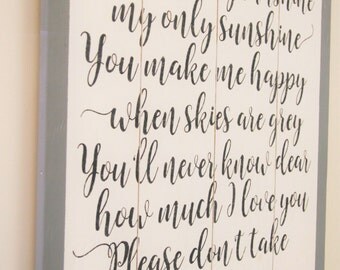 sunshine
my only sunshine
You make me happy
when skies are grey
You'll never know dear
how much I love you
Please don't take